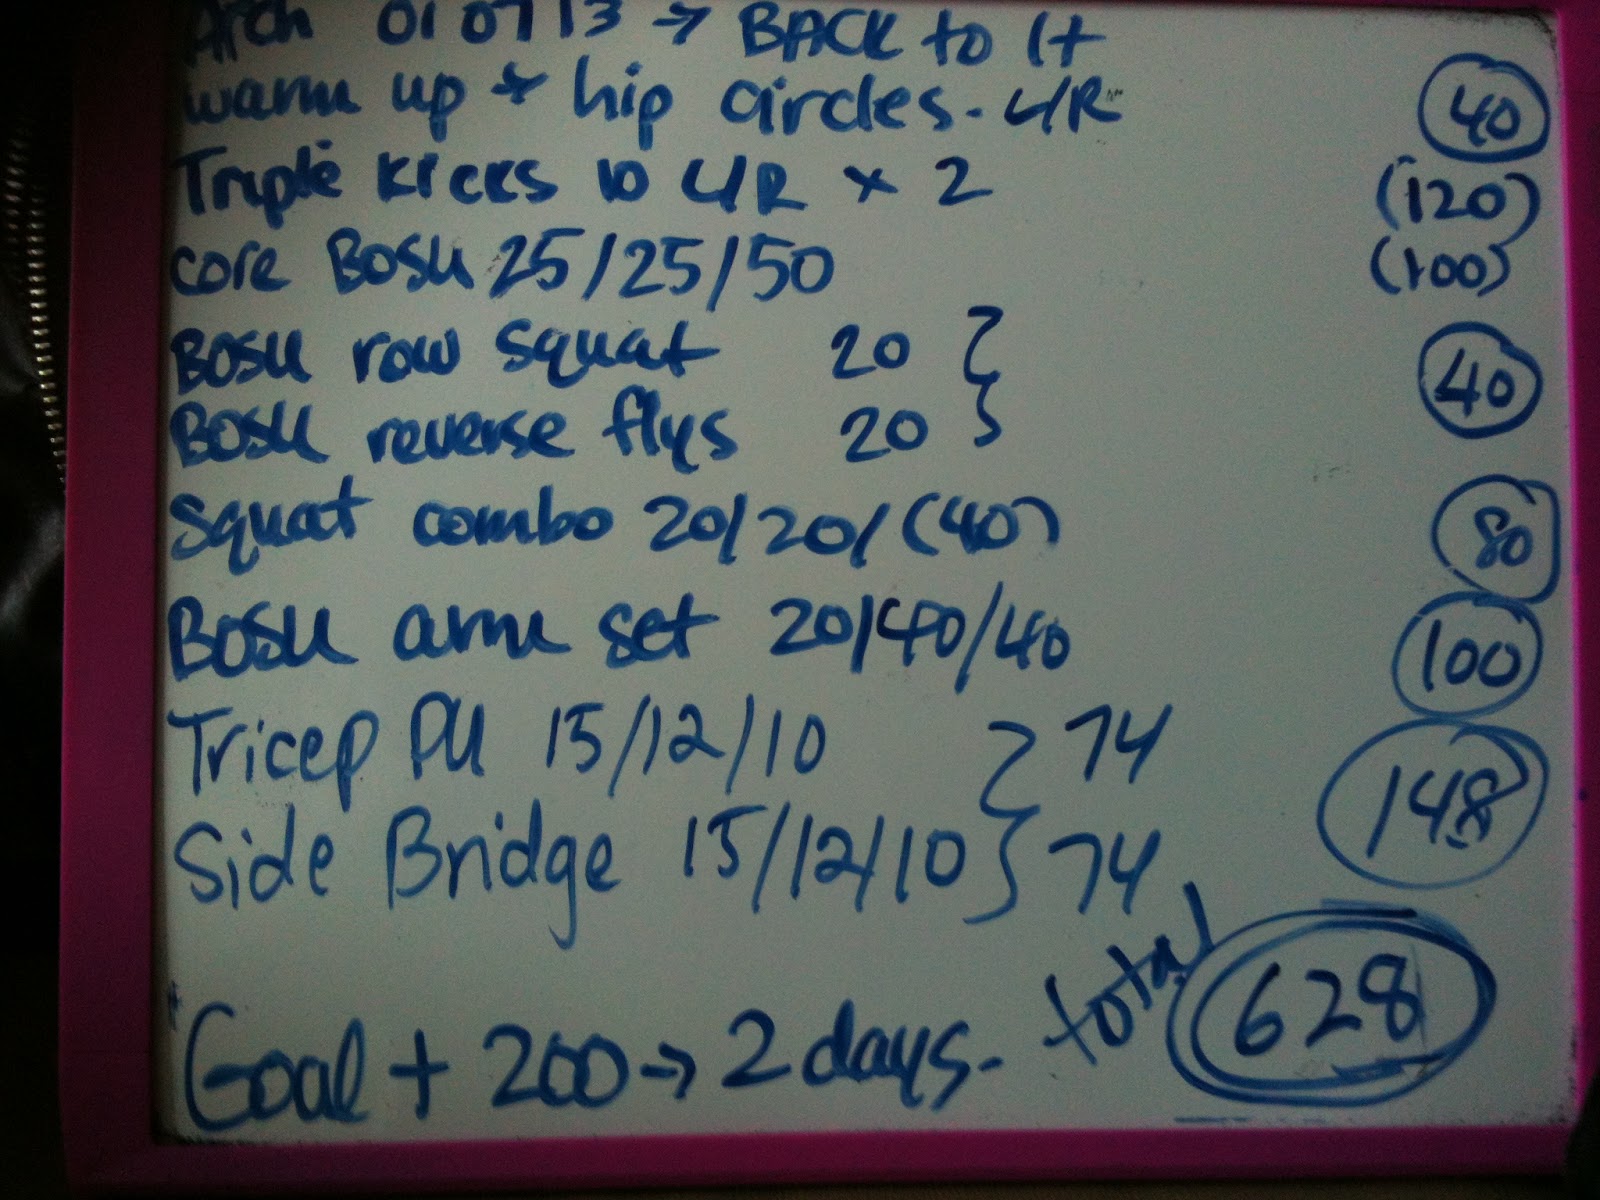 Arch 010713 → BACK to It
warm up + hip circles. L/R (40)
Triple kicks 10 L/R × 2 (120)
core BOSU 25/25/50 (100)
BOSU row squat 20 } 40
BOSU reverse flys 20
Squat combo 20/20/(40) 80
BOSU arm set 20/40/40 100
Tricep PU 15/12/10 } 74 148
Side Bridge 15/12/10 74
total 628
Goal + 200 → 2 days.